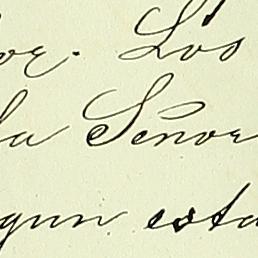 or. Los
la Señor
gun esta